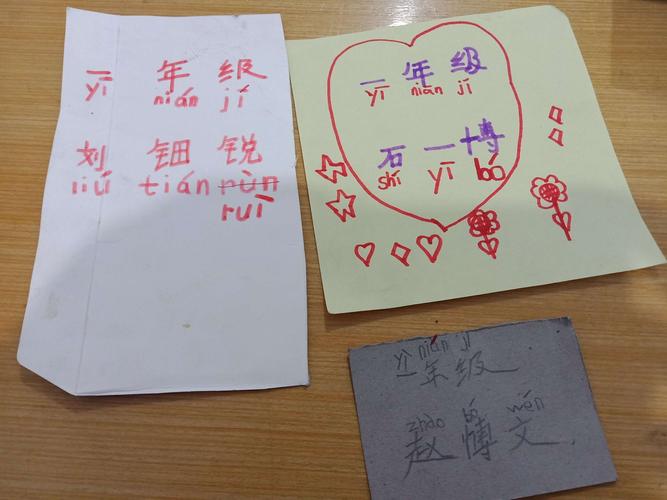 一 年 级
yī nián jí
刘 钿 锐
liú tián rùn
ruì
一 年 级
yī nián jí
石 一 博
shí yī bó
yī nián jí
一 年 级
zhào bó wén
赵 博 文